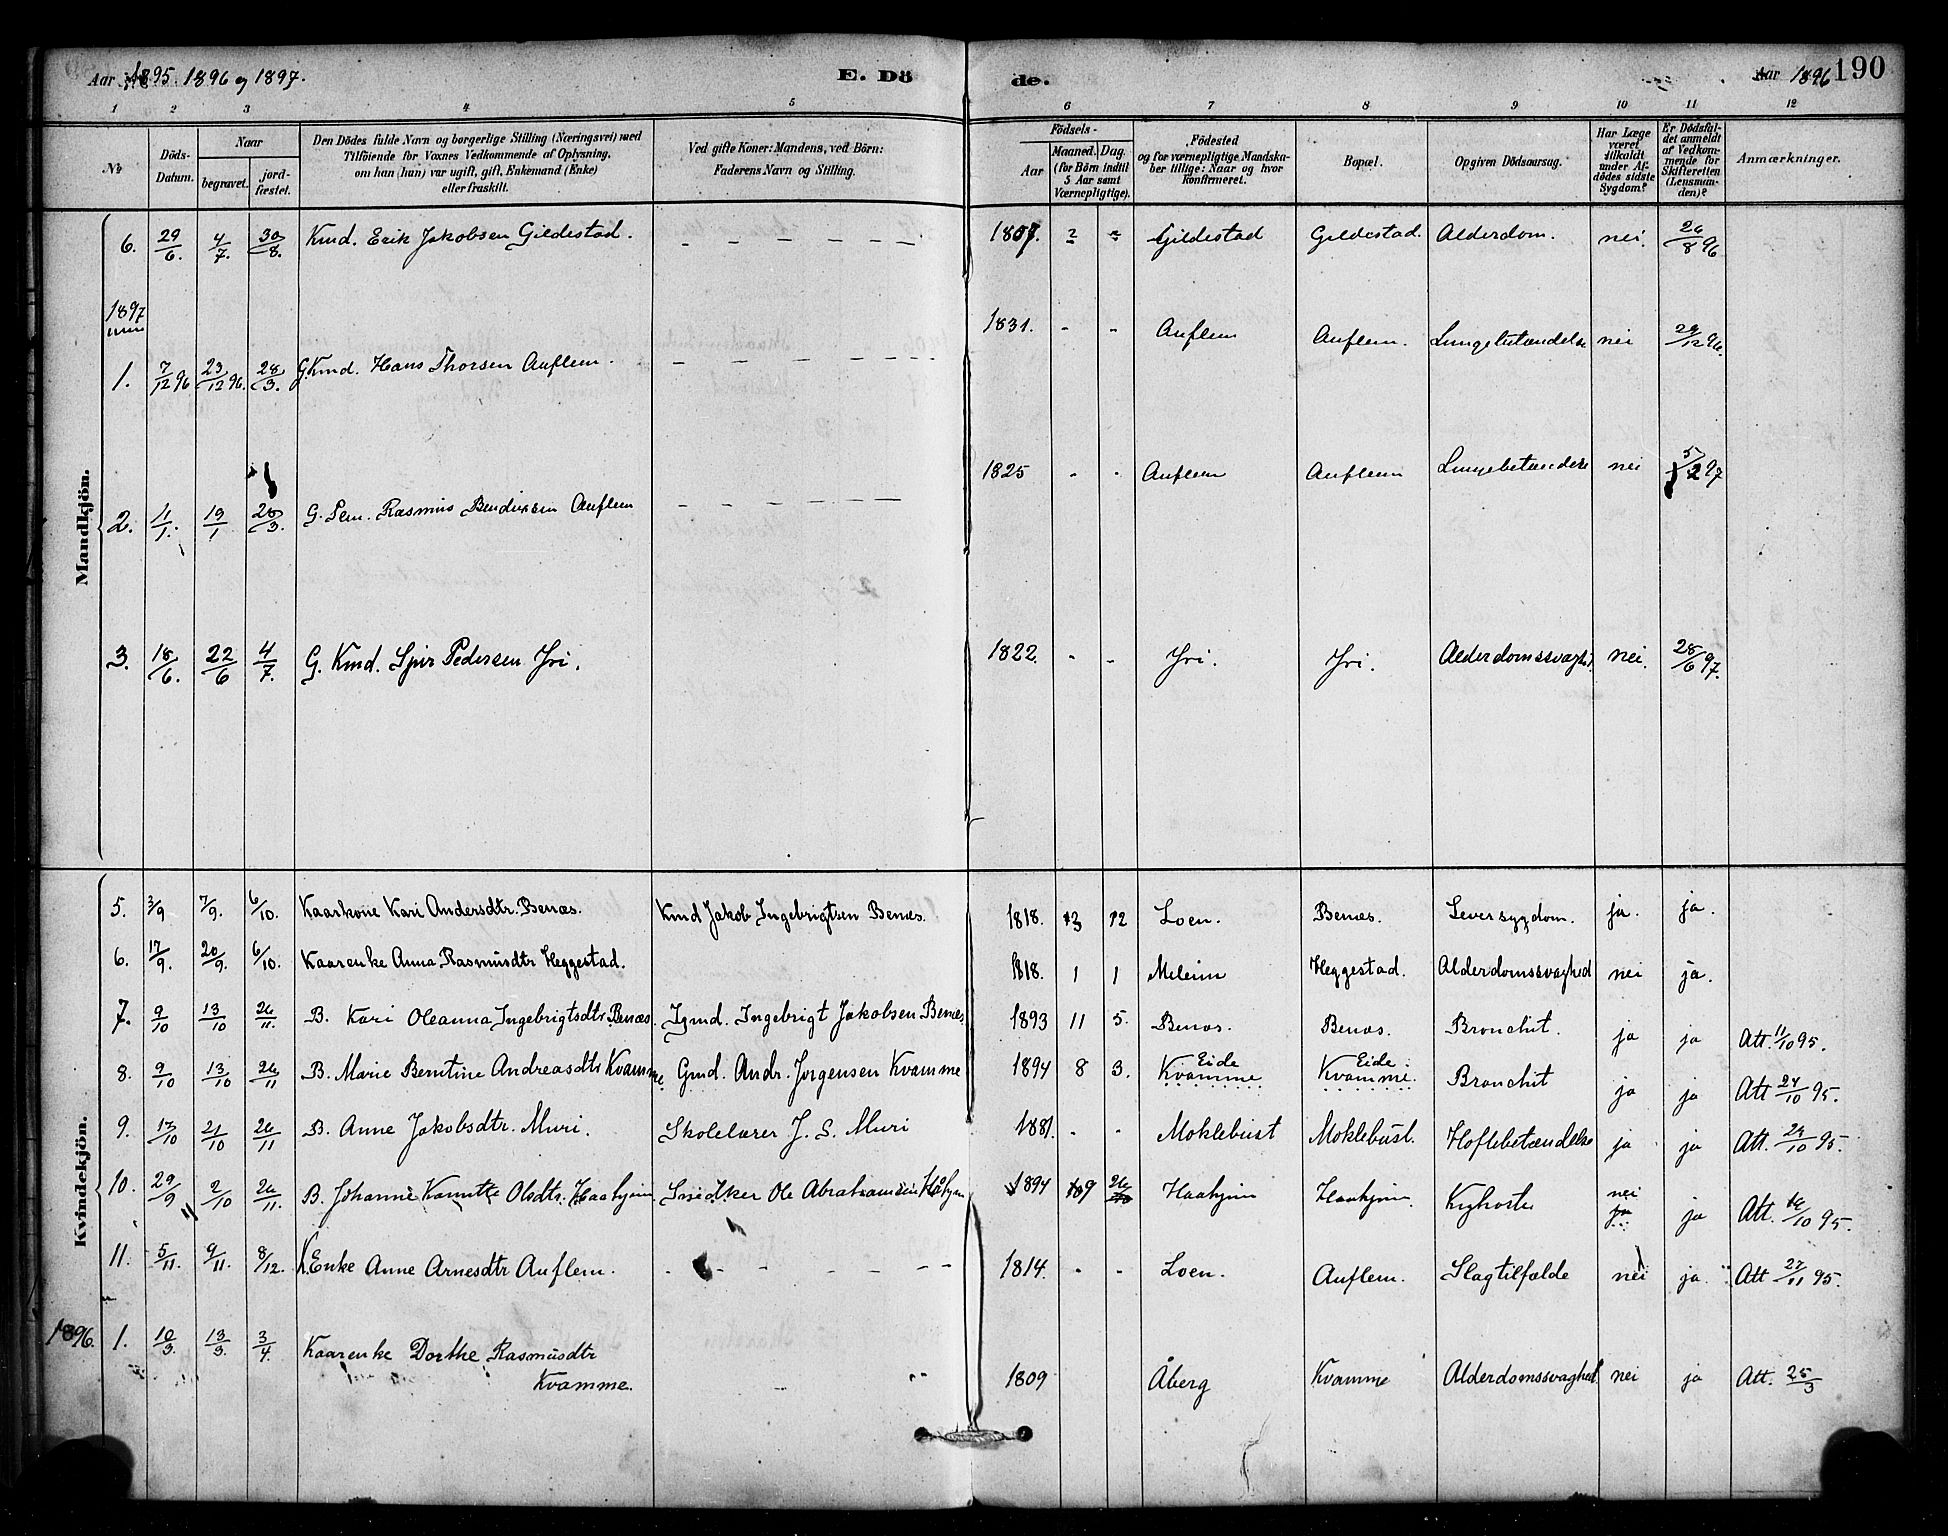 Aar 1895. 1896 og 1897.
E. Dö
de.
Aar 1896
190
1 2 3 4 5 6 7 8 9 10 11 12
No
Döds-Datum.
Naar
begravet.
jordfæstet.
Den Dödes fulde Navn og borgerlige Stilling (Næringsvei) med
Tilföiende for Voxnes Vedkommende af Oplysning,
om han (hun) var ugift, gift, Enkemand (Enke)
eller fraskilt.
Ved gifte Koner: Mandens, ved Börn:
Faderens Navn og Stilling.
Födsels-
Aar
Maaned. Dag.
(for Börn indtil
5 Aar samt
Værnepligtige).
Födested
og for værnepligtige Mandska-
ber tillige: Naar og hvor
konfirmeret.
Bopæl.
Opgiven Dödsaarsag.
Har Læge
været
tilkaldt
under Af-
dödes sidste
Sygdom?
Er Dödsfal-
det anmeldt
af Vedkom-
mende for
Skifteretten
(Lensman-
den)?
Anmærkninger.
Mandkjön.
6. 29/6. 4/7. 30/8. Kmd. Erik Jakobsen Gildestad. 1807. Gildestad Gildestad. Alderdom. nei. 26/8 96
1897
1. 7/12 96 23/12 96. 28/3. G. Kmd. Hans Thorsen Auflem. 1831. - - Auflem Auflem. Lungebetændelse nei 29/12 96.
2. 11/1. 19/1 28/3. G. Rasmus Auflem 1825 - - Auflem Auflem Lungebetændelse nei 5/2 97
3. 18/6. 22/6 4/7. G. Kmd. Pedersen Yri. 1822. - - Yri. Yri. Alderdomssvaghd. nei. 28/6 97.
Kvindekjön.
5. 3/9 7/9. 6/10. Kaarkone Kari Andersdtr. Benæs. Kmd Jakob Ingebrigtsen Benæs. 1818. 12 Loen. Benæs. Leversygdom. ja. ja.
6. 17/9. 20/9. 6/10. Kaarenke Anna Rasmusdtr Heggestad. 1818. 1 1 Meleim Heggestad. Alderdomssvaghed nei ja.
7. 9/10 13/10 26/11. B. Kari Oleanna Ingebrigtsdtr Benæs. Ingebrigt Jakobsen Benæs. 1893 11 5. Benæs. Benæs. Bronchit. ja ja Att. 11/10 95.
8. 9/10 13/10 26/11 B. Marie Berntine Andreasdtr Kvamme. Gmd. Andr. Jørgensen Kvamme 1894 8 3. Eide Kvamme Eide Kvamme. Bronchit ja ja Att 24/10 95.
9. 17/10 21/10 26/11 B. Anne Jakobsdtr. Muri. Skolelærer J. S. Muri 1881. - - Moklebust Moklebust. Hoftebetændelse ja ja Att 24/10 95.
10. 29/9 2/10 26/11. B. Johanne Olsdtr. Haahjem Snedker Ole Abrahamsen Håhjem 1894 9 26 Haahjem Haahjem. Kighoste nei ja ja Att. 10 95.
11. 5/11. 9/11. 8/12. K. Enke Anne Arnesdtr Auflem. 1814. - - Loen. Auflem. Slagtilfælde nei ja Att 27/11 95.
1896. 1. 10/3. 13/3. 3/4 Kaarenke Dorthe Rasmusdtr
Kvamme. 1809 Åberg Kvamme Alderdomssvaghed nei ja Att. 25/3